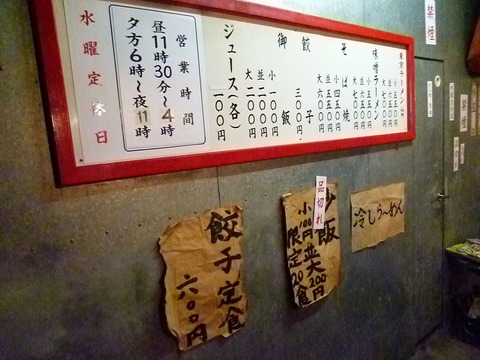 禁煙
東京ラーメン
小 五五〇円
並 六五〇円
大 七五〇円
味噌ラーメン
小 五五〇円
並 六五〇円
大 七〇〇円
そば焼
小 四五〇円
並 五五〇円
大 六五〇円
餃子
三〇〇円
御飯
小 一〇〇円
並 二〇〇円
大 二〇〇円
ジュース(各)
一〇〇円
営業時間
昼11時30分〜4時
夕方6時〜夜11時
水曜定休日
冷しらーめん
品切れ
飯
小100円 並大200円
限定20食
餃子定食
六〇〇円
禁煙